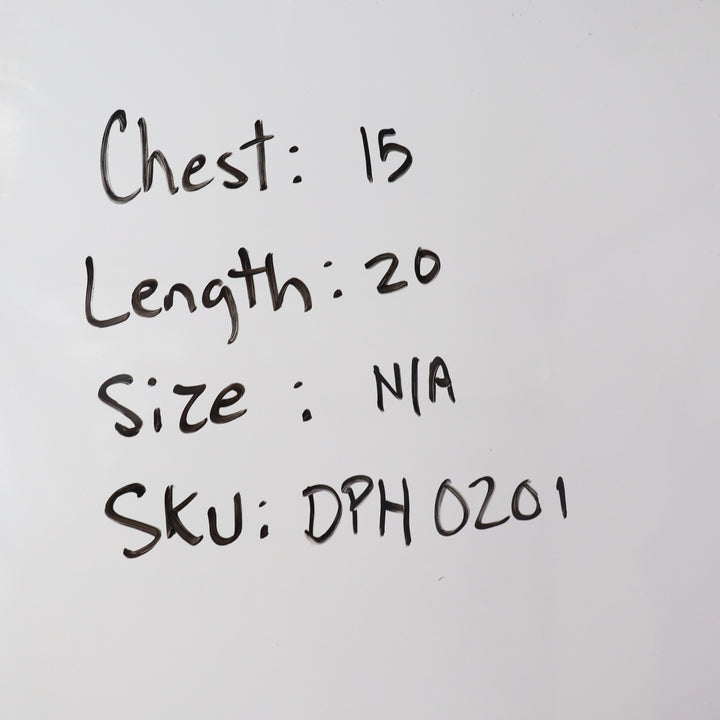 Chest: 15
Length: 20
Size: N/A
SKU: DPH 0201